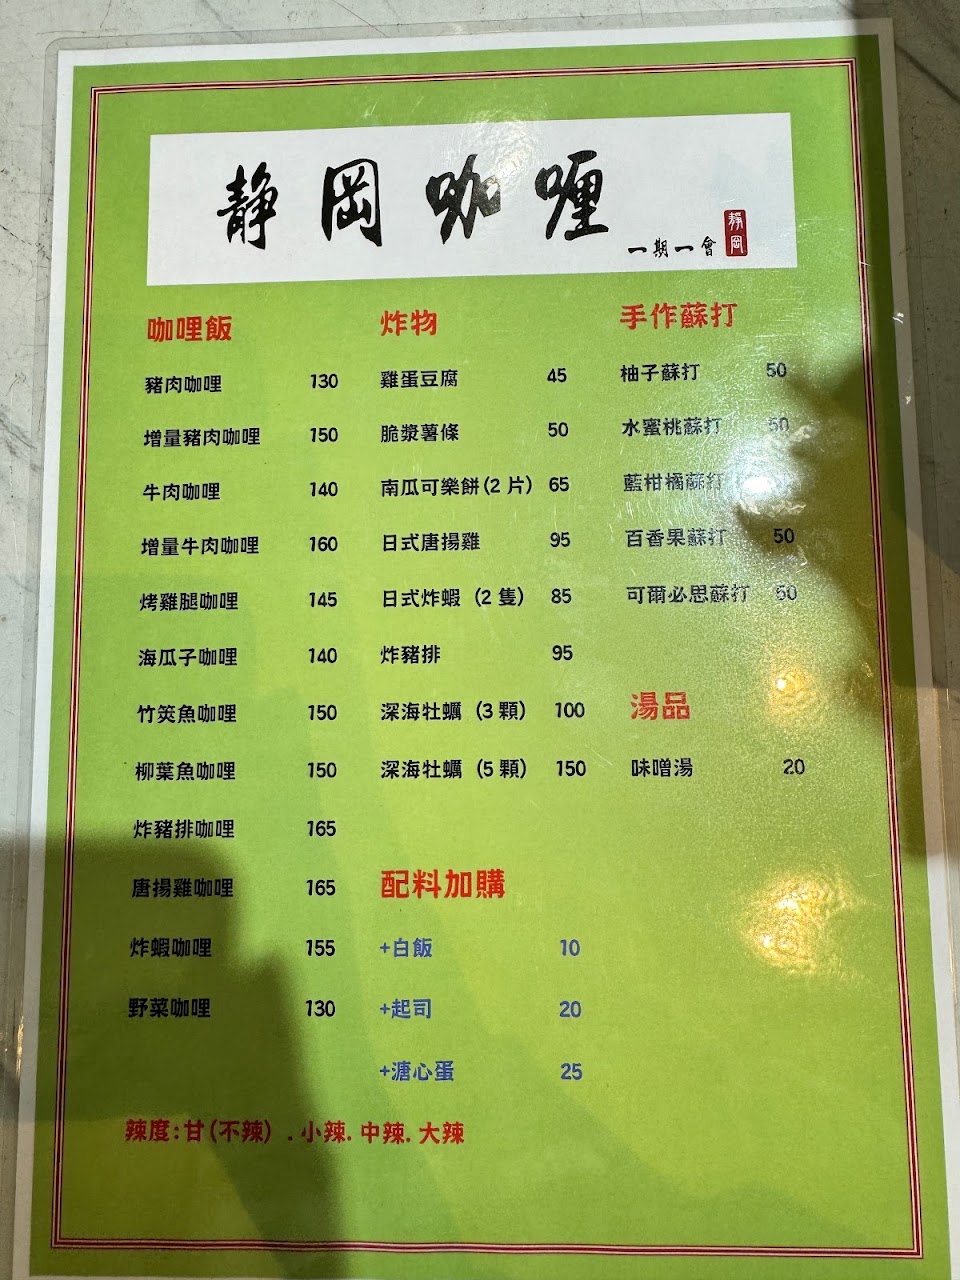 静岡咖喱
一期一會
靜岡
咖哩飯
豬肉咖哩 130
增量豬肉咖哩 150
牛肉咖哩 140
增量牛肉咖哩 160
烤雞腿咖哩 145
海瓜子咖哩 140
竹筴魚咖哩 150
柳葉魚咖哩 150
炸豬排咖哩 165
唐揚雞咖哩 165
炸蝦咖哩 155
野菜咖哩 130
炸物
雞蛋豆腐 45
脆漿薯條 50
南瓜可樂餅(2 片) 65
日式唐揚雞 95
日式炸蝦 (2 隻) 85
炸豬排 95
深海牡蠣 (3 顆) 100
深海牡蠣 (5 顆) 150
配料加購
+白飯 10
+起司 20
+溏心蛋 25
手作蘇打
柚子蘇打 50
水蜜桃蘇打 50
藍柑橘蘇打
百香果蘇打 50
可爾必思蘇打 50
湯品
味噌湯 20
辣度:甘(不辣) .小辣.中辣.大辣